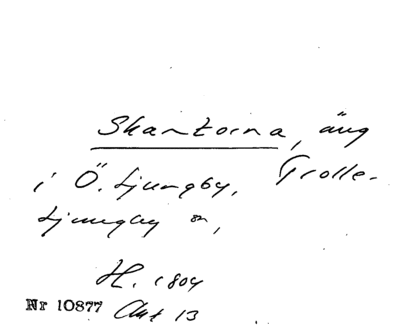 Skantorna, äng
i Ö. Ljungby, Trolle-
Ljungby sn,
H. 1804
Nr 10877 Akt 13